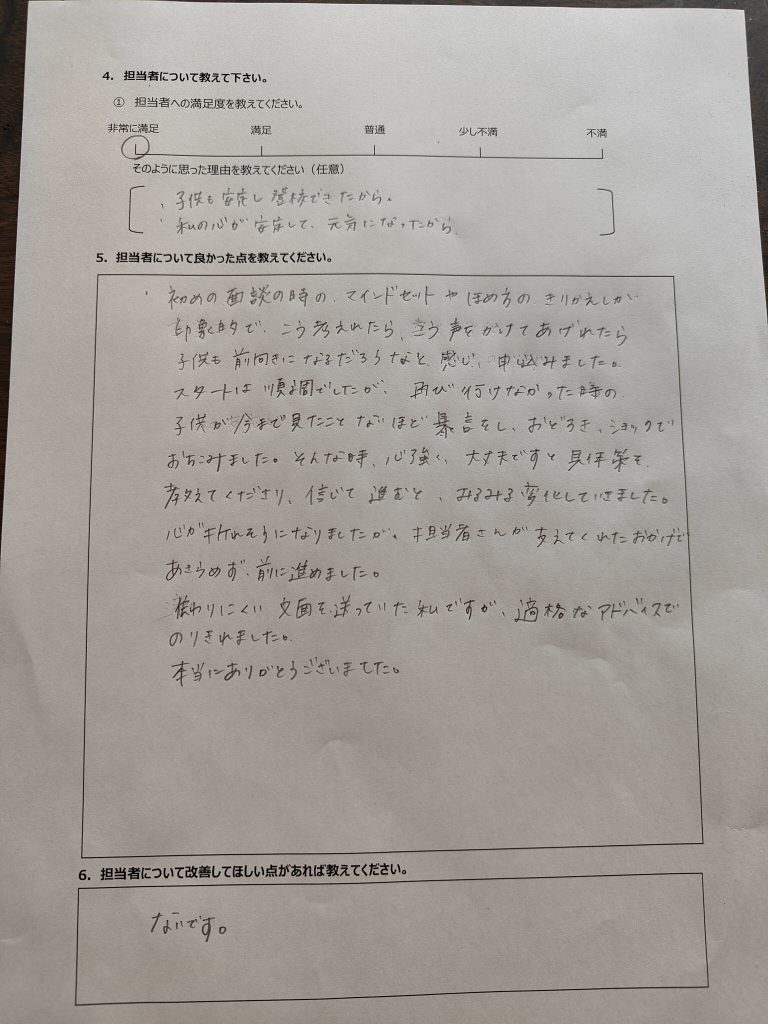 4. 担当者について教えて下さい。
① 担当者への満足度を教えてください。
非常に満足 満足 普通 少し不満 不満
そのように思った理由を教えてください（任意）
・子供も安定し登校できたから。
・私の心が安定して、元気になったから
5. 担当者について良かった点を教えてください。
・初めの面談の時の、マインドセットやほめ方の、きりかえしが
印象的で、こう考えれたら、こう声をかけてあげれたら
子供も前向きになるだろうなと感じ、申込みました。
スタートは順調でしたが、再び行けなかった時の
子供が今まで見たことないほど暴言をし、おどろき、ショックで
おちこみました。そんな時、心強く、大丈夫ですと具体策を
教えてくださり、信じて進むと、みるみる変化していきました。
心が折れそうになりましたが、担当者さんが支えてくれたおかげで
あきらめず、前に進めました。
伝わりにくい文面を送っていた私ですが、適格なアドバイスで
のりきれました。
本当にありがとうございました。
6. 担当者について改善してほしい点があれば教えてください。
ないです。